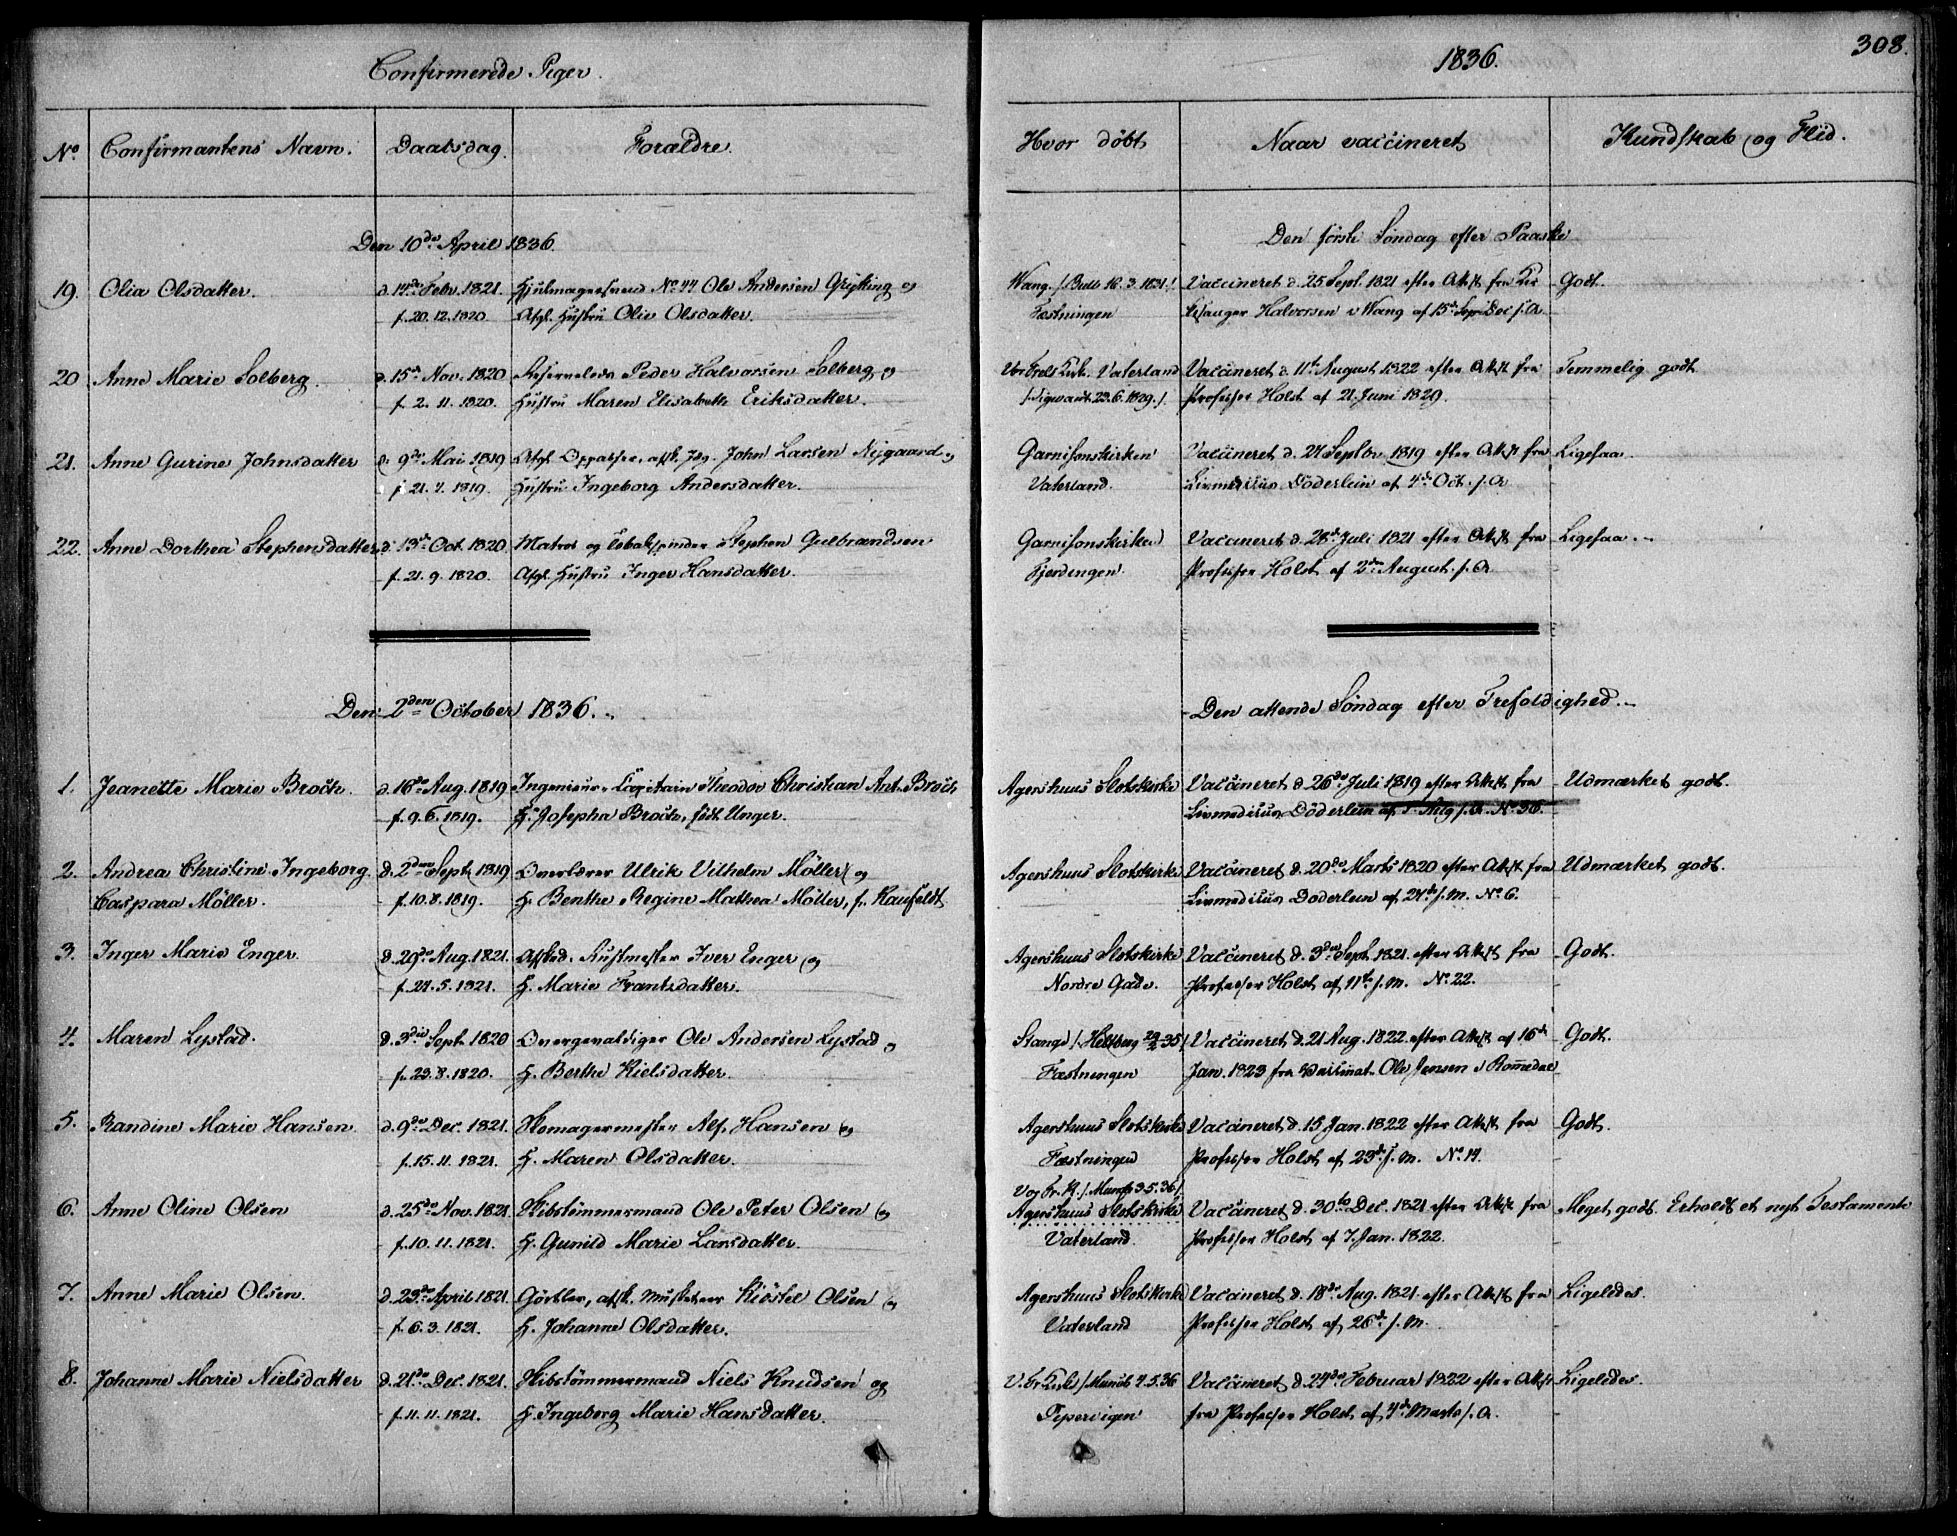 Confirmerede Piger.
1836.
308.
No Confirmantens Navn. Daabsdag. Forældre. Hvor döbt. Naar vaccineret Kundskab og Flid.
Den 10de April 1836. Den förste Söndag efter Paaske
19. Olia Olsdatter. d. 14de Febr. 1821. No 44 Ole Andersen og Wang. 16. 3. 1821. Vaccineret d. 25 Sept. 1821 efter Attest fra Godt.
f. 20. 12. 1820 Afgl. Hustru Olia Olsdatter. Fæstningen Halvorsen Wang af 15de
20 Anne Marie Solberg. d. 15de Nov. 1820 Peder Halvorsen Solberg og Vaterland Vaccineret d. 11te August 1822 efter Attest fra Temmelig godt
f. 2. 11. 1820. Hustru Maren Elisabeth Eriksdatter. 23. 6. 1829. Professor Holst af 21. Juni 1829.
21. Anne Gurine Johnsdatter d. 9de Mai 1819 Afgl. Oppasser, afsk. Jæg. John Larsen Nygaard og Garnisonskirken Vaccineret d. 27 Septbr. 1819 efter Attest fra Ligesaa.
f. 21. 4. 1819. Hustru Ingeborg Andersdatter. Vaterland. Livmedicus Döderlein af 4de Oct. s. A.
22. Anne Dorthea Stephensdatter d. 13de Oct. 1820 Matros og Tobakspinder Stephen Gulbrandsen Garnisonskirken Vaccineret d. 28de Juli 1821 efter Attest fra Ligesaa.
f. 21. 9. 1820. Afgl. Hustru Inger Hansdatter. Fjerdengen. Professor Holst af 2den August. s. A.
Den 2den October 1836. Den attende Söndag efter Trefoldighed.
1. Jeanette Marie Broch. d. 16de Aug. 1819 Ingenieur-Capitain Theodor Christian Ant. Broch Agershuus Slotskirke Vaccineret d. 26de Juli 1819 efter Attest fra Udmærket godt.
f. 9. 6. 1819. H. Josepha Broch, födt Unger. Livmedicus Döderlein af Aug. s. A. No 36.
2. Andrea Christine Ingeborg d. 2den Sept. 1819 Overlærer Ulrik Vilhelm Möller og Agershuus Slotskirke Vaccineret d. 20de Marts 1820 efter Attest fra Udmærket godt.
Caspara Möller. f. 10. 8. 1819. H. Benthe Regine Mathea Möller, f. Kaufeldt Livmedicus Döderlein af 27de s. M. No 6.
3. Inger Marie Enger d. 29de Aug. 1821. Afskd. Rustmester Iver Enger og Agershuus Slotskirke Vaccineret d. 3die Sept. 1821 efter Attest fra Godt.
f. 27. 5. 1821. H. Marie Frantsdatter. Nordre Gade. Professor Holst af 11te s. M. No 22.
4. Maren Lystad. d. 3die Sept. 1820 Overgevaldiger Ole Andersen Lystad og Stange Vaccineret d. 21 Aug. 1822 efter Attest af 16de Godt.
f. 23. 8. 1820. H. Berthe Kielsdatter. Fæstningen Jan. 1823 fra Vaccinat. Ole Jensen i Romedal
5. Randine Marie Hansen d. 9de Dec. 1821. Skomagermester Alf Hansen og Agershuus Slotskirke Vaccineret d. 15 Jan. 1822 efter Attest fra Godt.
f. 15. 11. 1821. H. Maren Olsdatter. Fæstningen Professor Holst af 23de s. M. No 14.
Munch 3. 5. 36.
6. Anne Oline Olsen d. 25de Nov. 1821. Skibstömmermand Ole Peter Olsen og Agershuus Slotskirke Vaccineret d. 30te Dec. 1821 efter Attest fra Meget godt. Erholdt et nyt Testamente
f. 10. 11. 1821. H. Gunild Marie Larsdatter. Vaterland. Professor Holst af 7. Jan. 1822.
7. Anne Marie Olsen. d. 29de April 1821. Görtler, afsk. Musketeer Kiöstel Olsen og Agershuus Slotskirke Vaccineret d. 18de Aug. 1821 efter Attest fra Ligeledes.
f. 6. 3. 1821. H. Johanne Olsdatter. Vaterland Professor Holst af 26de s. M.
8. Johanne Marie Nielsdatter d. 21de Dec. 1821. Skibstömmermand Niels Knudsen og V. Fr. Kirke / Munch 4. 5. 36 Vaccineret d. 24de Februar 1822 efter Attest Ligeledes.
f. 11. 11. 1821. H. Ingeborg Marie Hansdatter. Pipervigen fra Professor Holst af 4de Marts s. A.